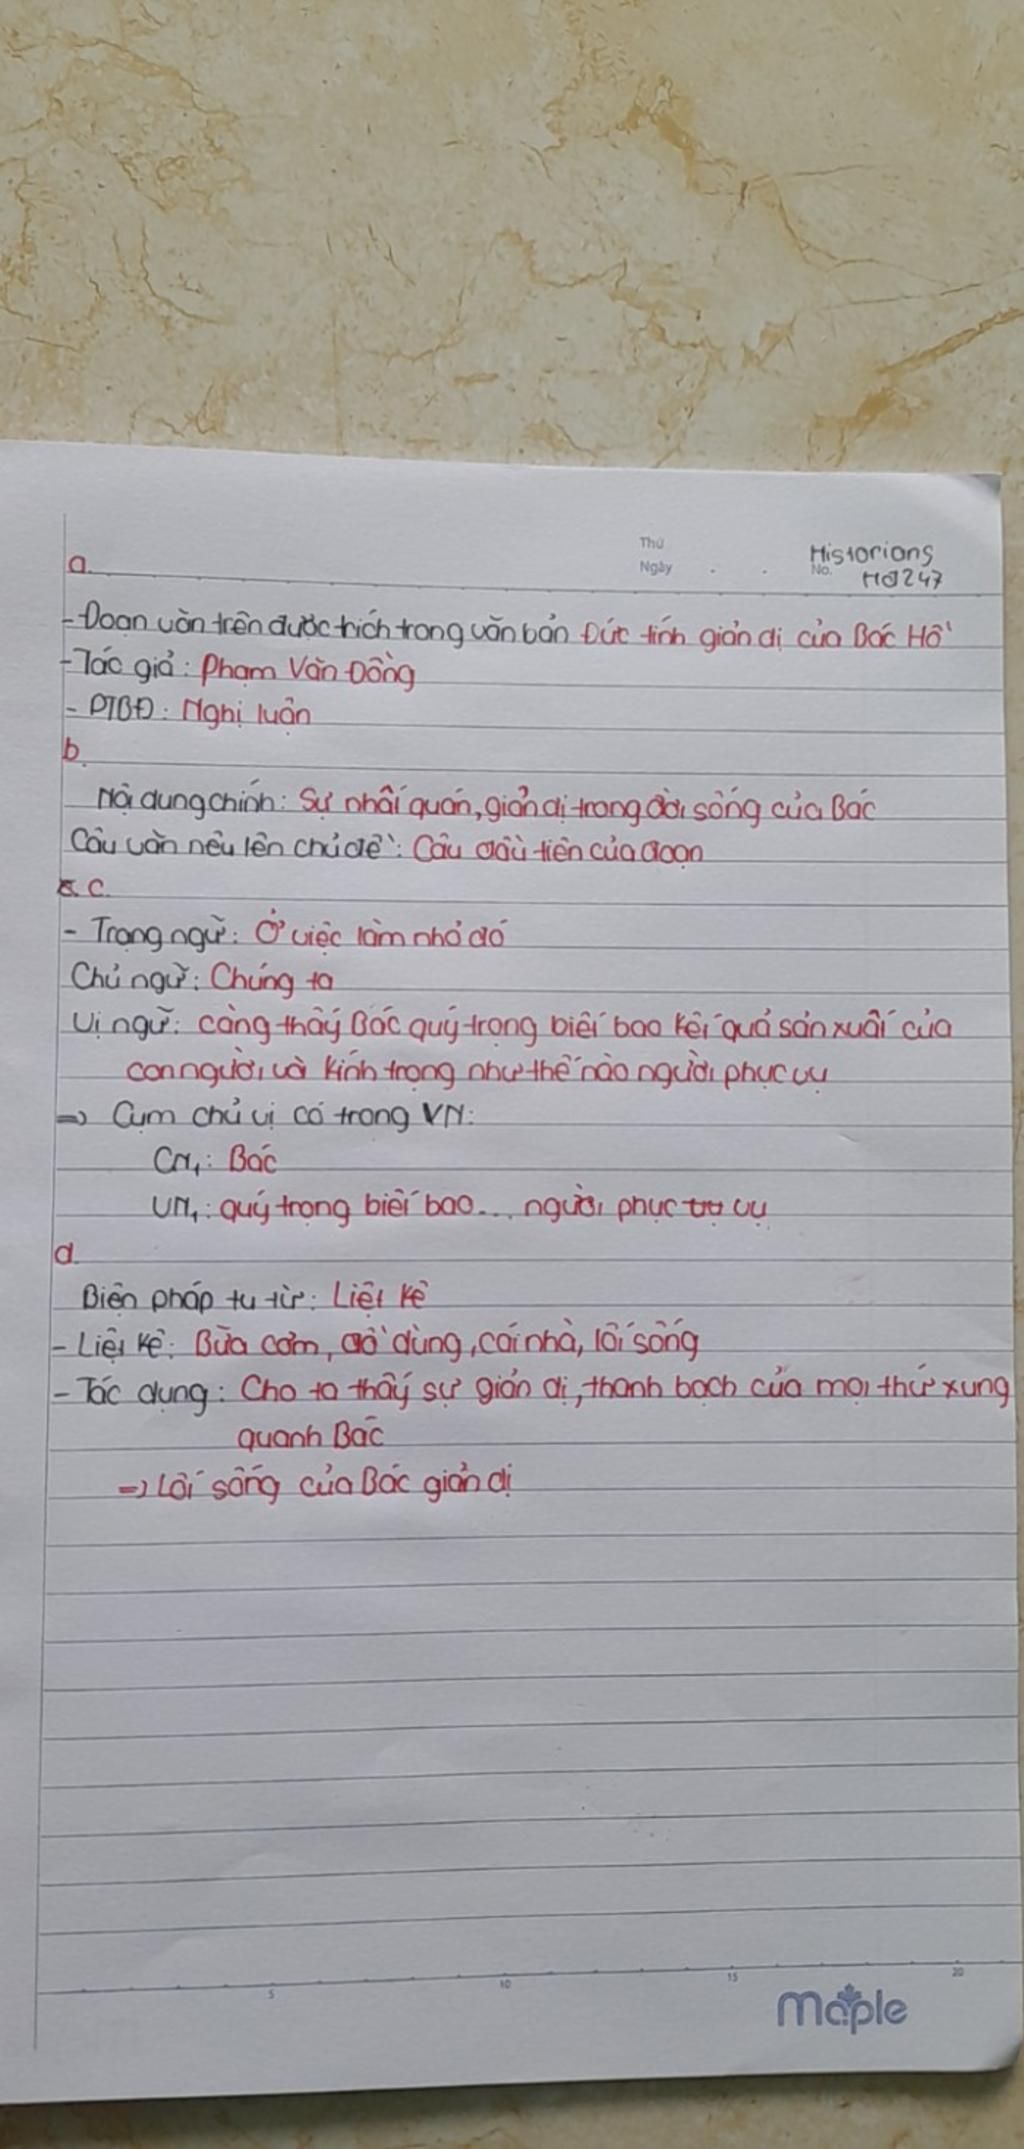 Thứ
Ngày . .
No. Historians
HD247
a.
- Đoạn văn trên được trích trong văn bản Đức tính giản dị của Bác Hồ
- Tác giả: Phạm Văn Đồng
- PTBĐ: Nghị luận
b.
Nội dung chính: Sự nhất quán, giản dị trong đời sống của Bác
Câu văn nêu lên chủ đề: Câu đầu tiên của đoạn
c.
- Trạng ngữ: Ở việc làm nhỏ đó
Chủ ngữ: Chúng ta
Vị ngữ: càng thấy Bác quý trọng biết bao kết quả sản xuất của
con người và kính trọng như thế nào người phục vụ
=> Cụm chủ vị có trong VN:
CN₁: Bác
VN₁: quý trọng biết bao... người phục vụ
d.
Biện pháp tu từ: Liệt kê
- Liệt kê: Bữa cơm, đồ dùng, cái nhà, lối sống
- Tác dụng: Cho ta thấy sự giản dị, thanh bạch của mọi thứ xung
quanh Bác
=> Lối sống của Bác giản dị
5 10 15 20
maple